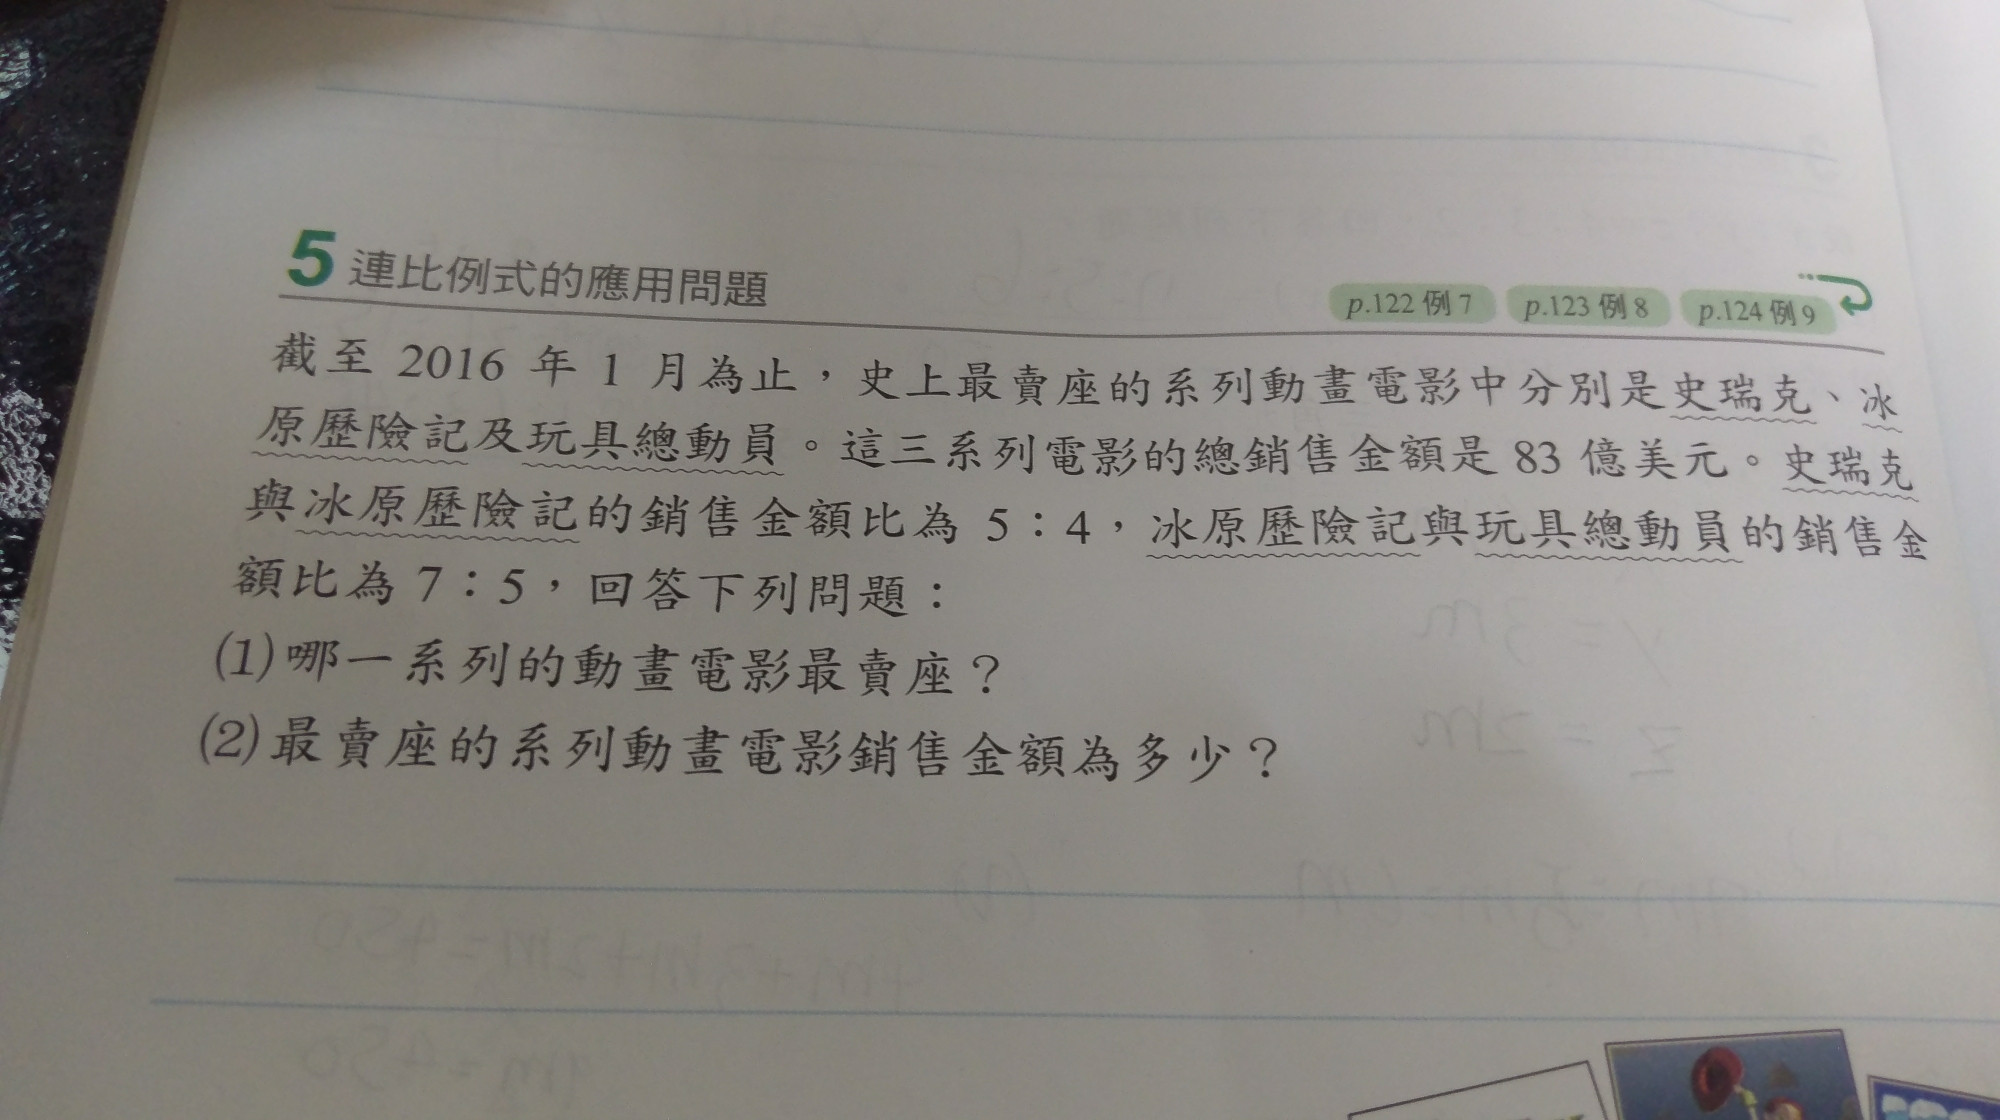 5 連比例式的應用問題
p.122 例 7 p.123 例 8 p.124 例 9
截至 2016 年 1 月為止，史上最賣座的系列動畫電影中分別是史瑞克、冰
原歷險記及玩具總動員。這三系列電影的總銷售金額是 83 億美元。史瑞克
與冰原歷險記的銷售金額比為 5：4，冰原歷險記與玩具總動員的銷售金
額比為 7：5，回答下列問題：
(1)哪一系列的動畫電影最賣座？
(2)最賣座的系列動畫電影銷售金額為多少？